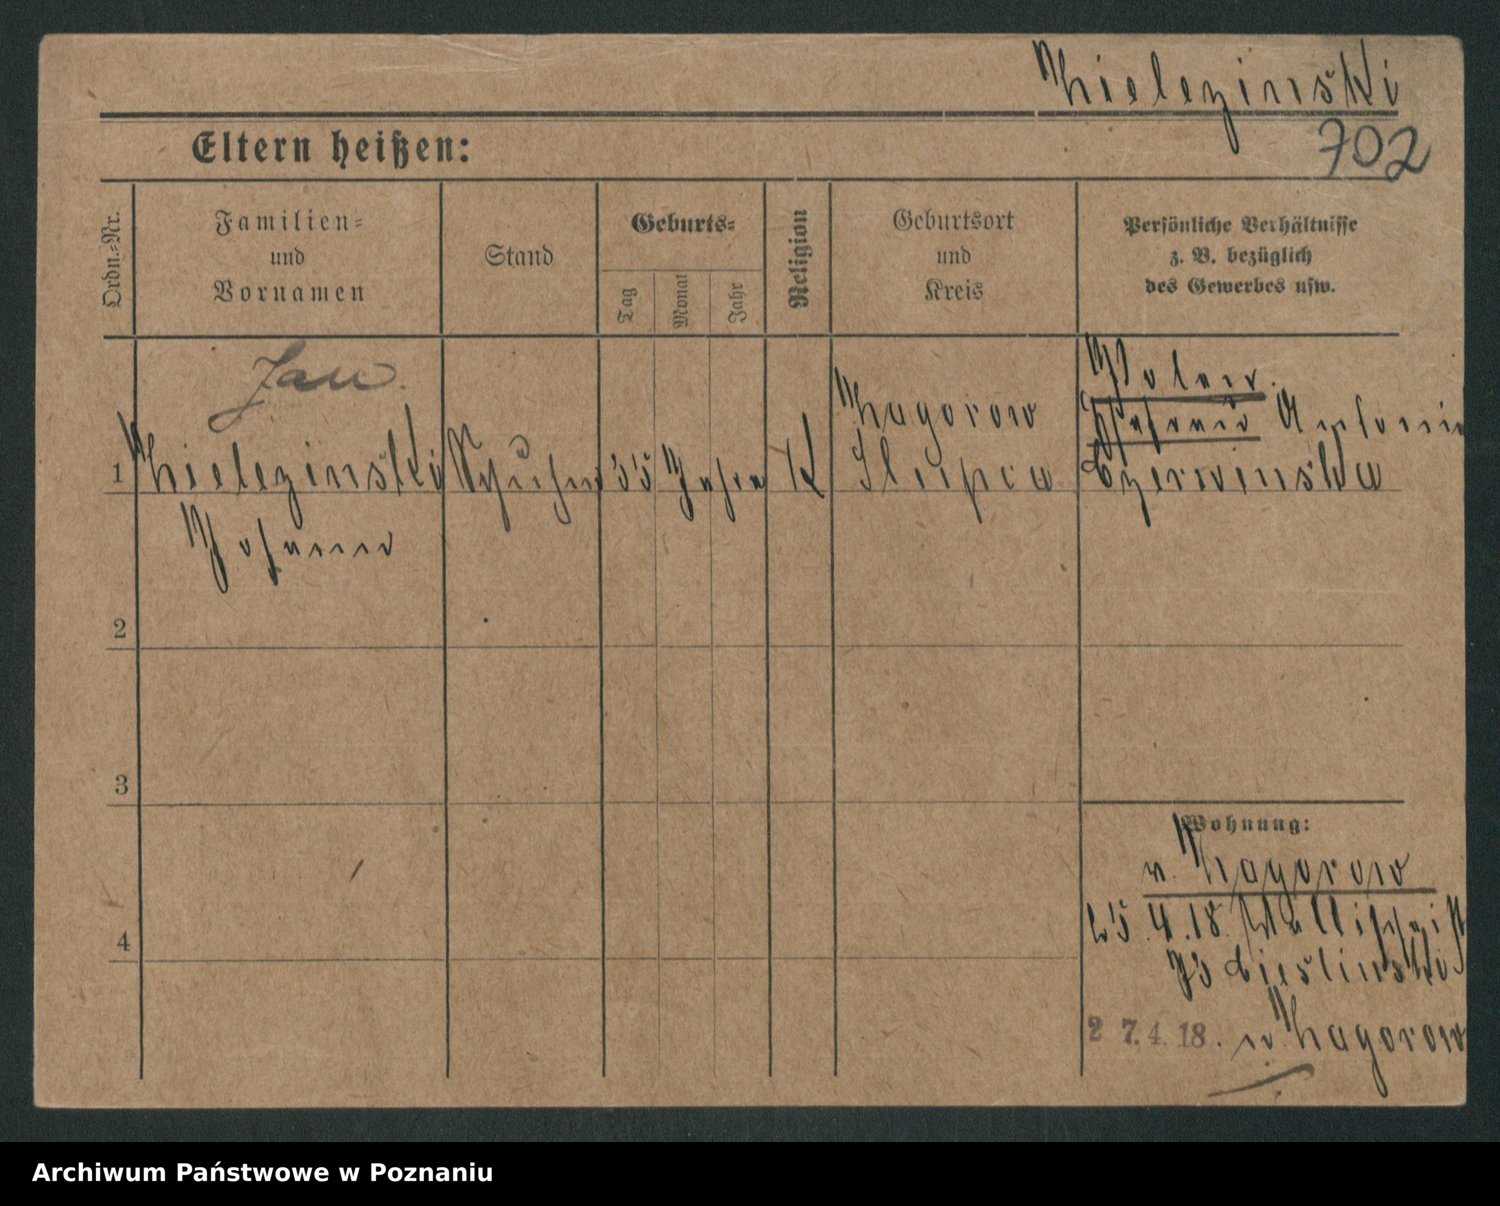 Zielezinski
702
Eltern heißen:
Ordn.-Nr.
Familien-
und
Vornamen
Stand
Geburts-
Tag
Monat
Jahr
Religion
Geburtsort
und
Kreis
Persönliche Verhältnisse
z. B. bezüglich
des Gewerbes usw.
Jan.
1
Zielezinski
Johann
35 Jahre
K
Zagorow
Slupca
Polen.
Antonie
Czerwinska
2
3
4
Wohnung:
v. Zagorow
25.4.18.
Cieslinski
27.4.18. n Zagorow
Archiwum Państwowe w Poznaniu